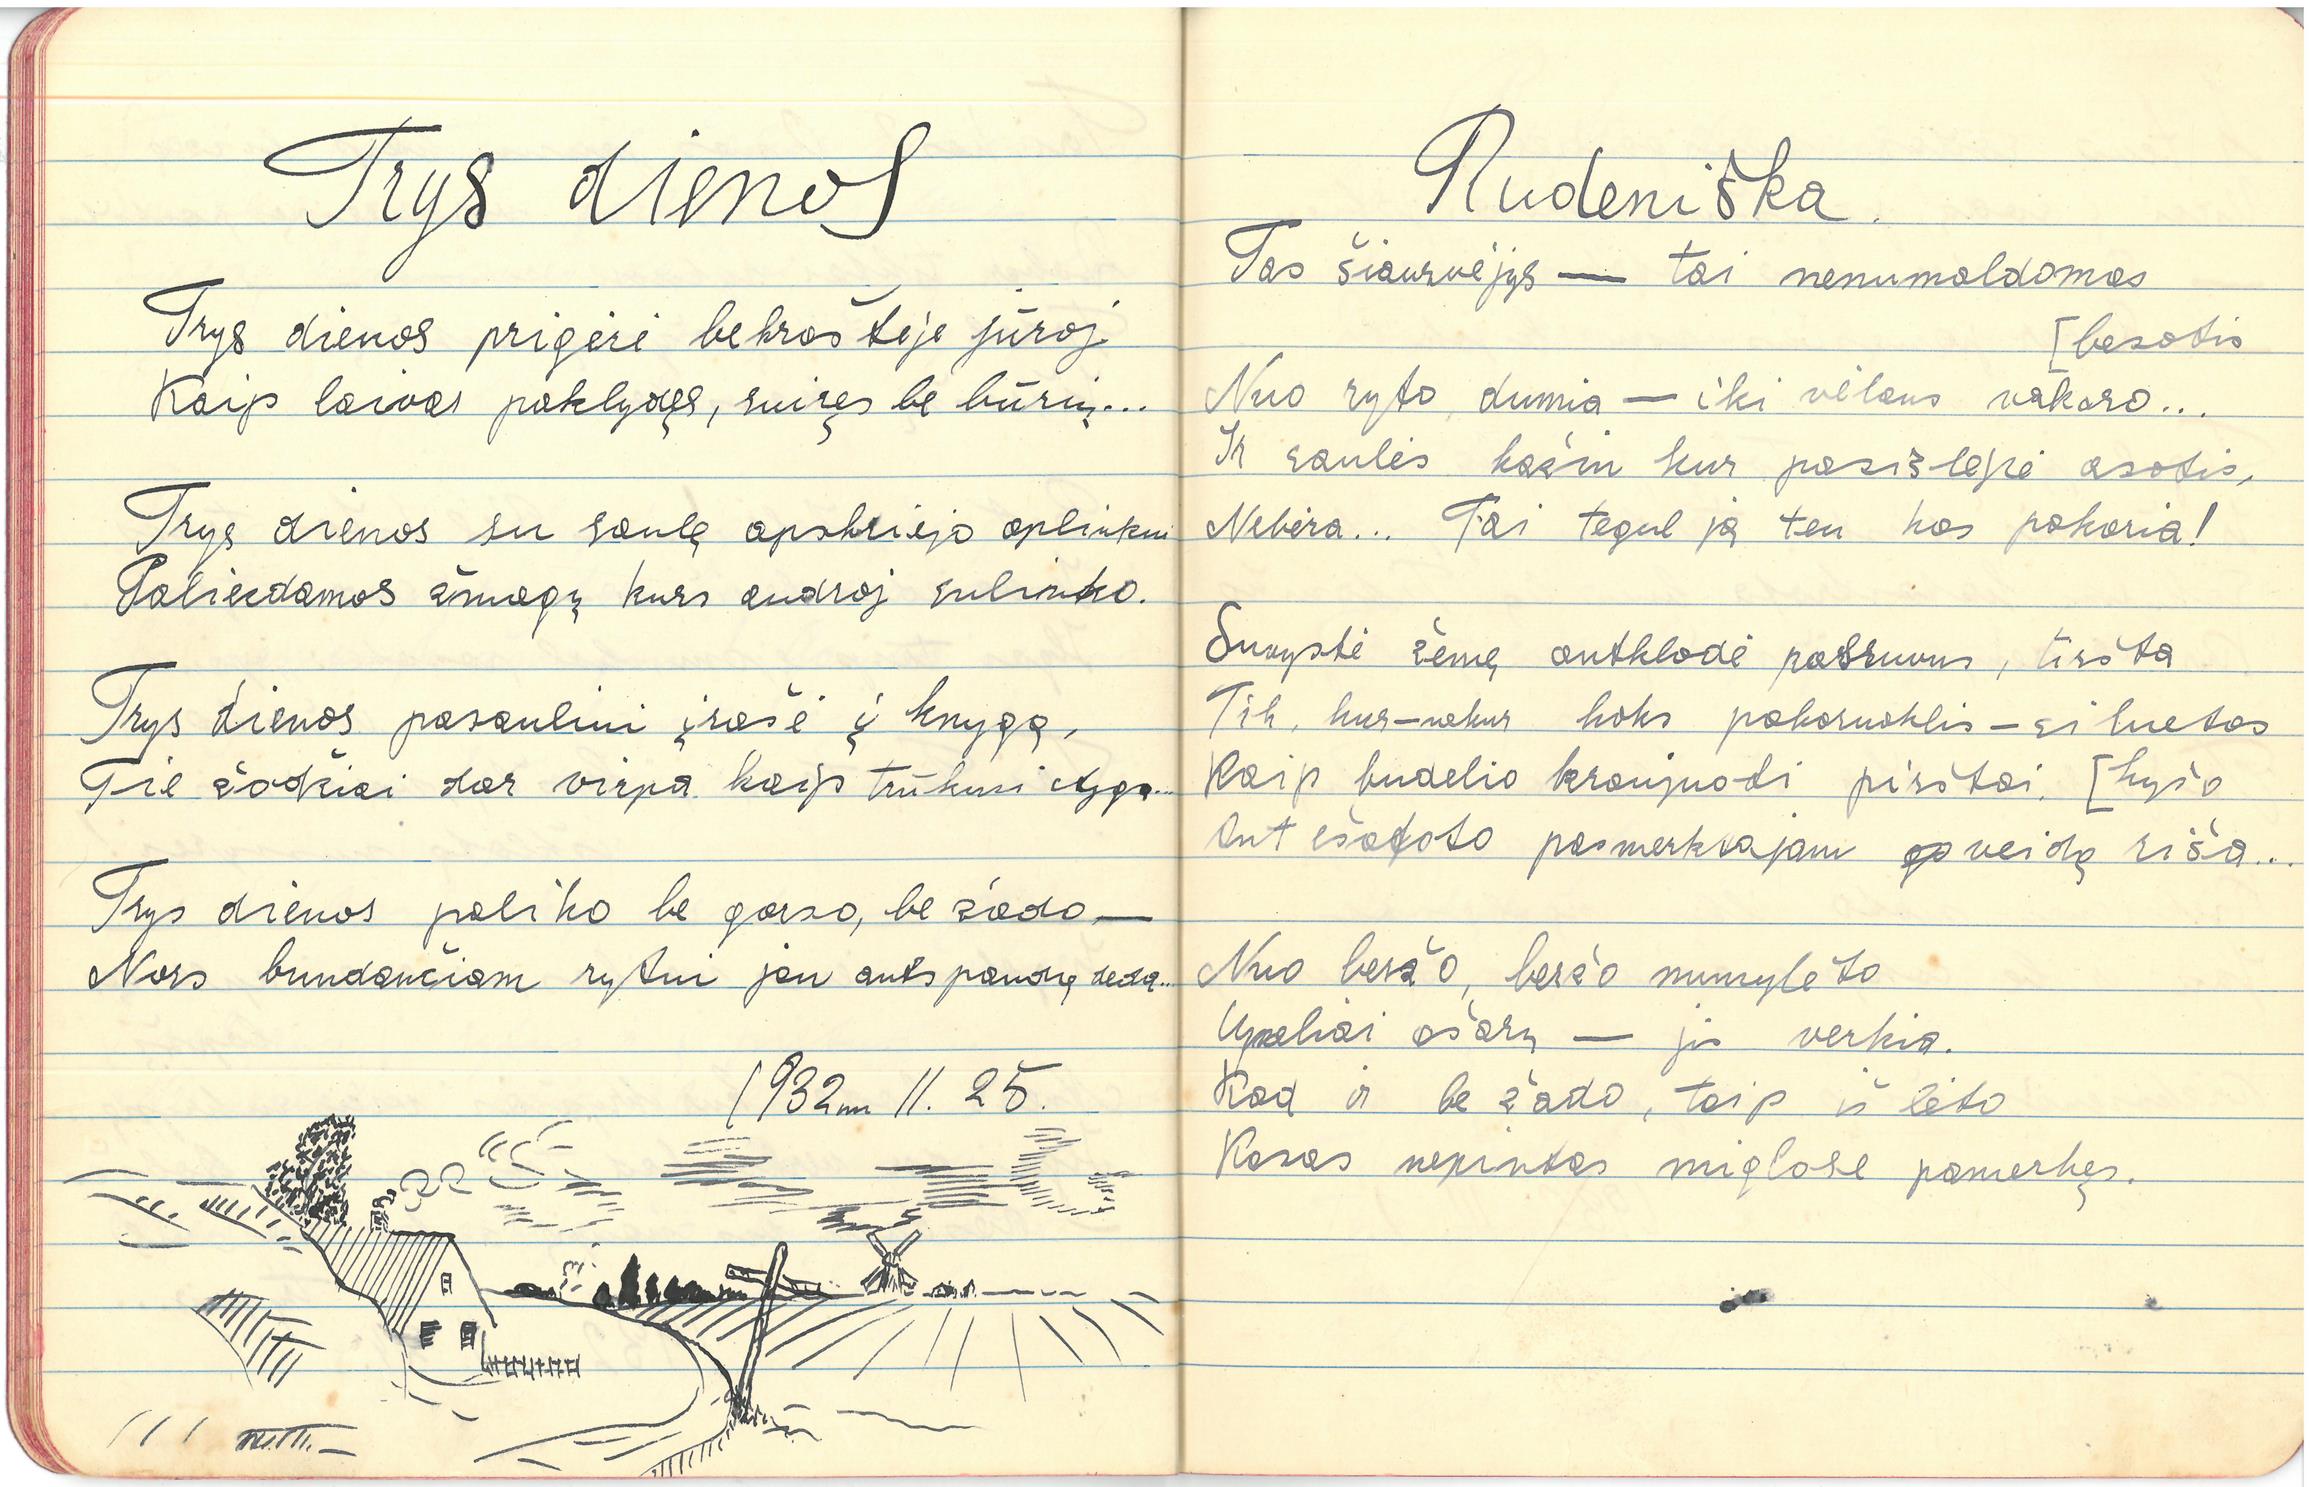 Trys dienos
Trys dienos prigėrė bekraštėje jūroj
Kaip laivas paklydęs, suiręs be būrių...
Trys dienos su saule apskriejo aplinkui
Paliekdamos žmogų kurs audroj sulinko.
Trys dienos pasauliui įrašė į knygą,
Tie žodžiai dar virpa kaip trūkusi styga...
Trys dienos paliko be garso, be žado —
Nors bundančiam rytui jau antspaudą deda...
1932 m 11. 25.
Rudeniška.
Tas šiaurvėjys — tai nenumaldomas
[besotis
Nuo ryto dumia — iki vėlaus vakaro...
Ir saulės kažin kur pasislėpė asotis,
Nebėra... Tai tegul ją ten kas pakaria!
Suvystė žemę antklodė pašiurus, tiršta
Tik kur-nekur koks pakaruoklis – siluetas
Kaip budelio kraujuoti pirštai. [kyšo
Ant ešafoto pasmerktajam veidą riša...
Nuo beržo, beržo numylėto
Upeliai ašarų — jis verkia.
Kad ir be žado, taip iš lėto
Kasas nepintas miglose pamerkęs.